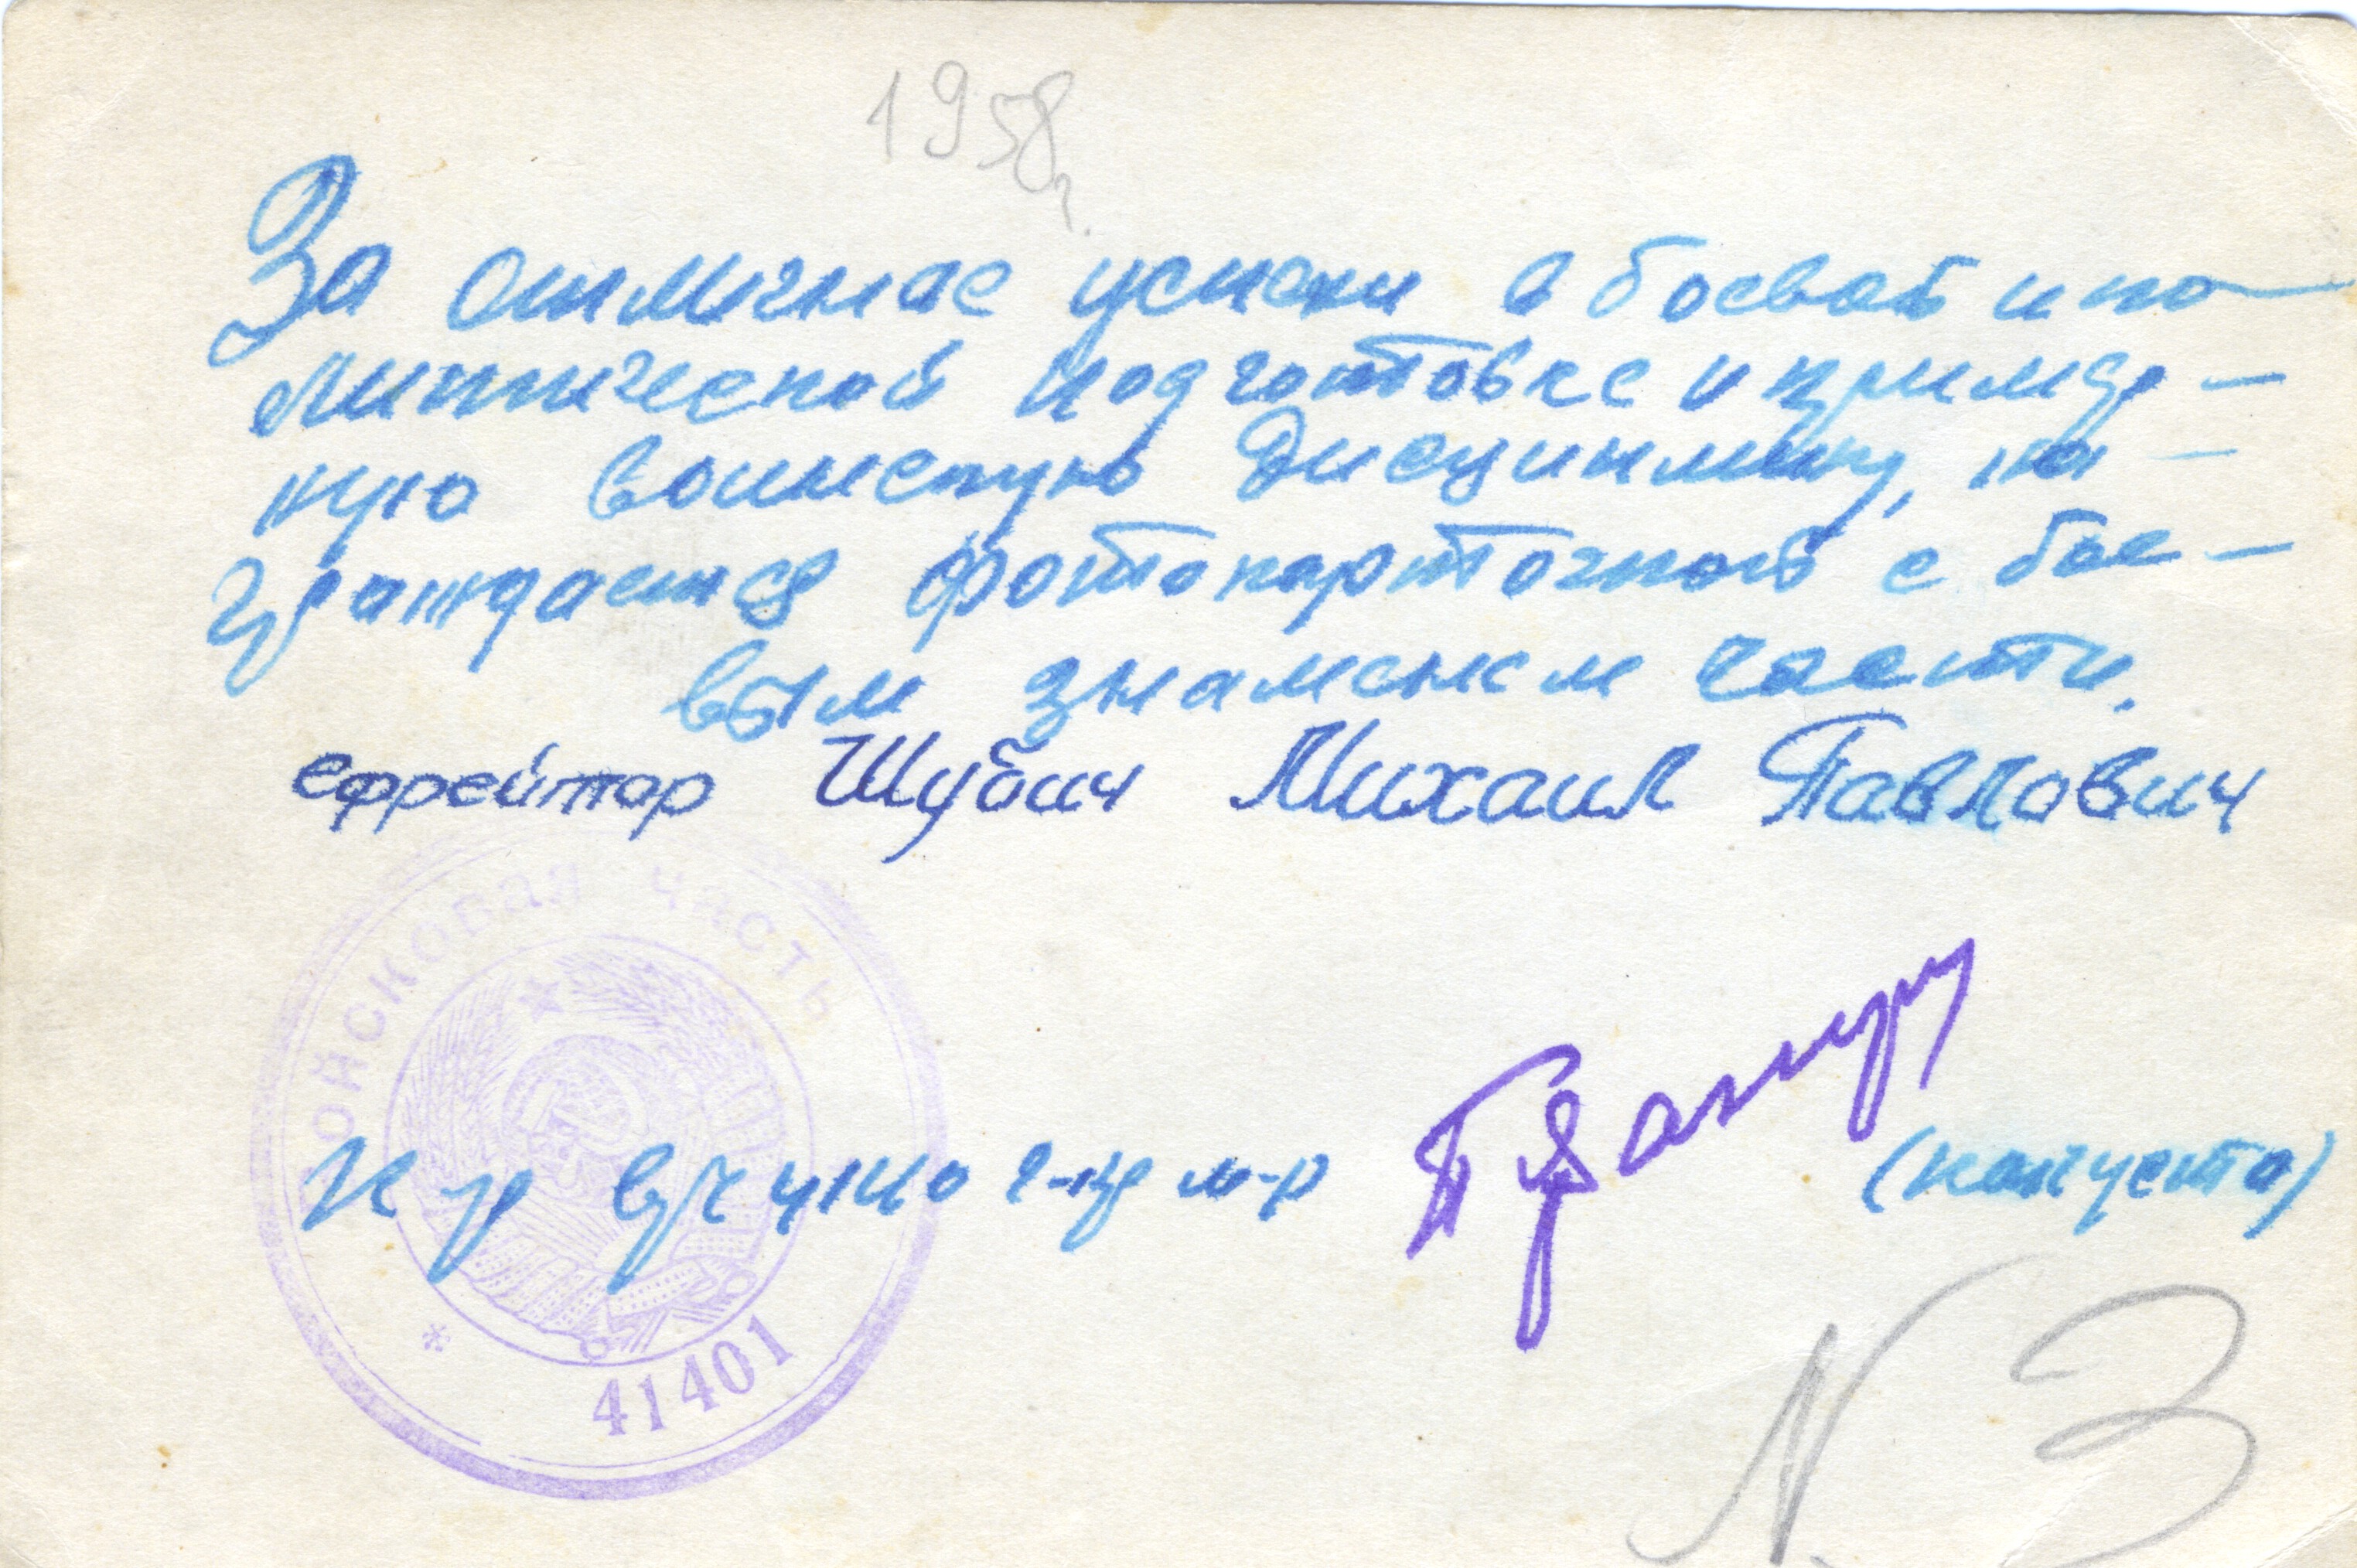 1958 г.
За отличные успехи в боевой и по-
литической подготовке и пример-
ную воинскую дисциплину, на-
граждается фотокарточкой с бое-
вым знаменем части.
ефрейтор Шубич Михаил Павлович
ВОЙСКОВАЯ ЧАСТЬ
К-р в/части г-в м-р
(Капуста)
* 41401
N 3